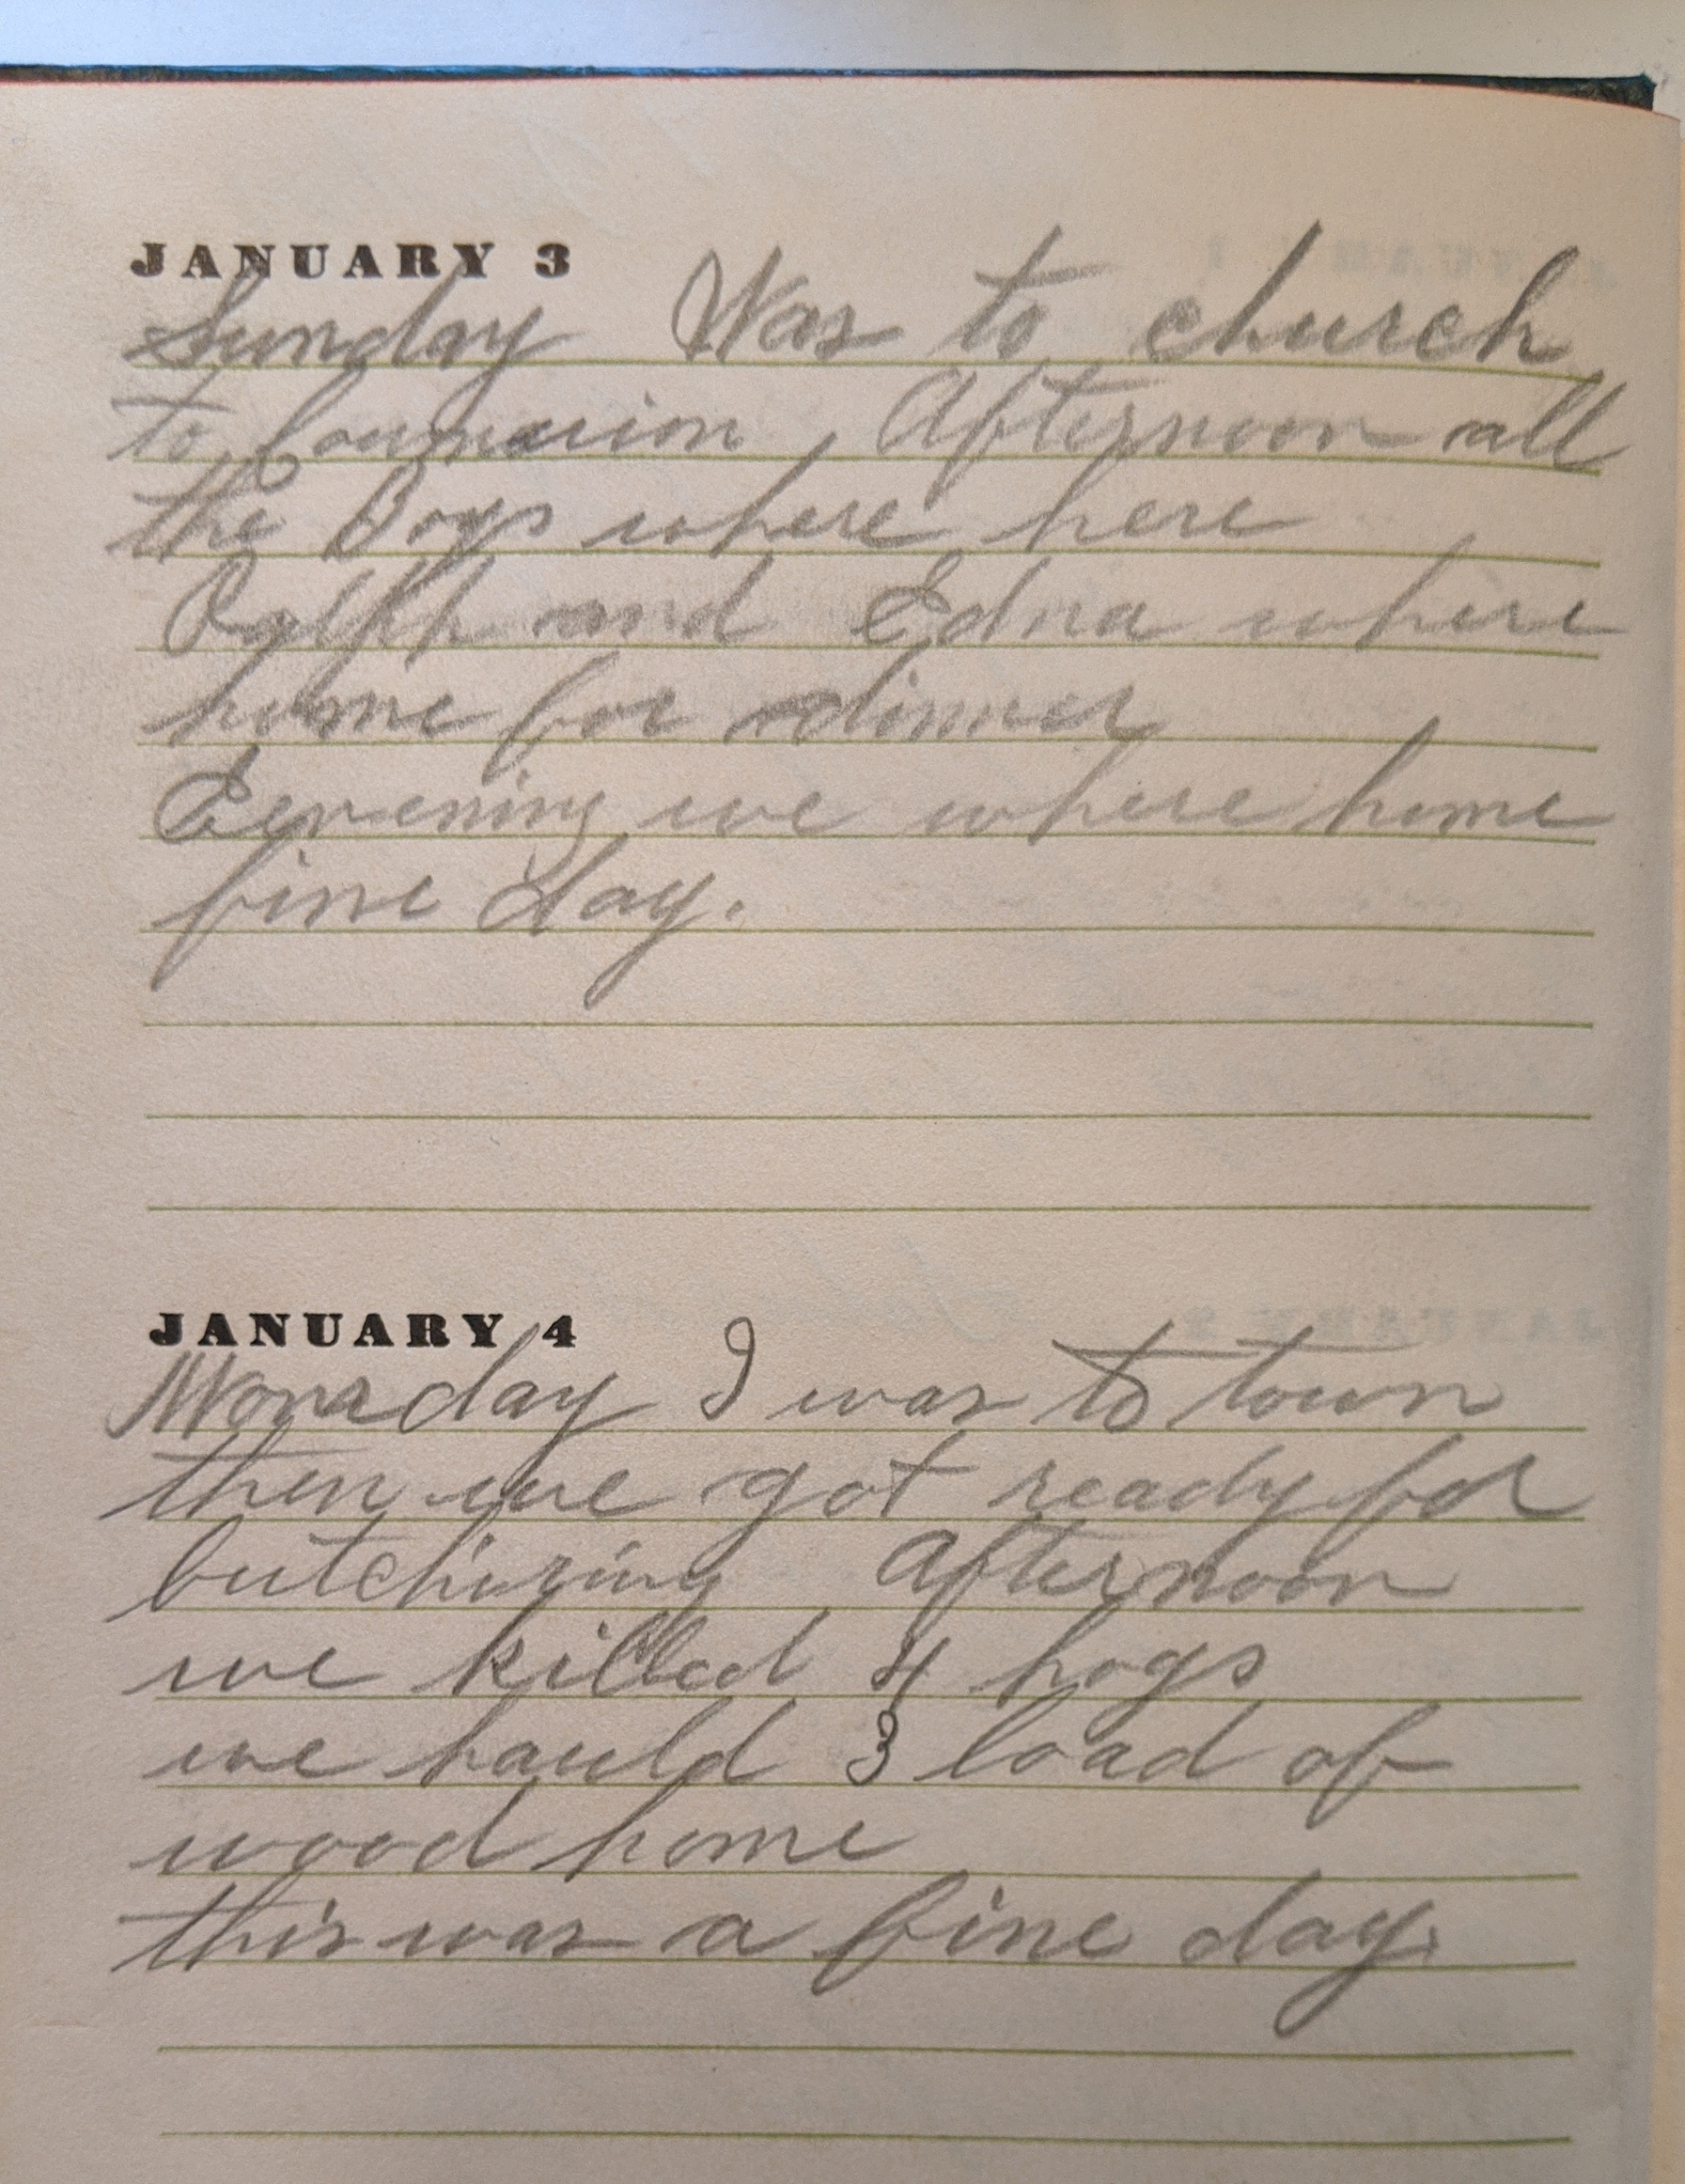 JANUARY 3
Sunday Was to church
to Coumunion, Afternoon all
the Boys where here
Ralph and Edna where
home for dinner
Eevening we where home
fine day.
JANUARY 4
Monday I was to town
then we got ready for
butchiring Afternoon
we killed 4 hogs
we hauld 3 load of
wood home
this was a fine day.